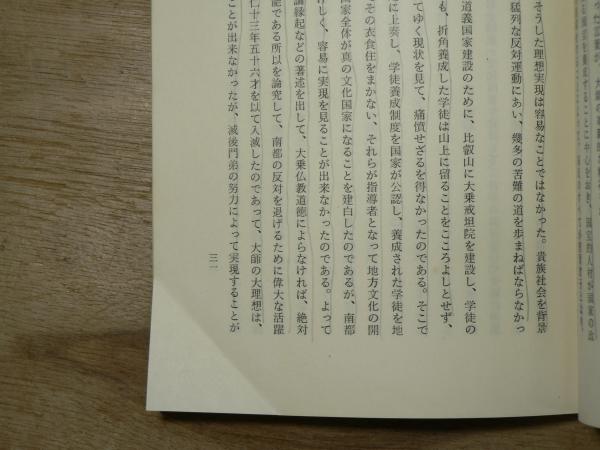 そうした理想実現は容易なことではなかった。貴族社会を背景
猛烈な反対運動にあい、幾多の苦難の道を歩まねばならなかっ
道義国家建設のために、比叡山に大乗戒壇院を建設し、学徒の
も、折角養成した学徒は山上に留ることをこころよしとせず、
てゆく現状を見て、痛憤せざるを得なかったのである。そこで
に上奏し、学徒養成制度を国家が公認し、養成された学徒を地
その衣食住をまかない、それらが指導者となって地方文化の開
国家全体が真の文化国家になることを建白したのであるが、南都
しく、容易に実現を見ることが出来なかったのである。よって
論縁起などの著述を出して、大乗仏教道徳によらなければ、絶対
能である所以を論究して、南都の反対を退けるために偉大な活躍
仁十三年五十六才を以て入滅したのであって、大師の大理想は、
ことが出来なかったが、滅後門弟の努力によって実現することが
三一